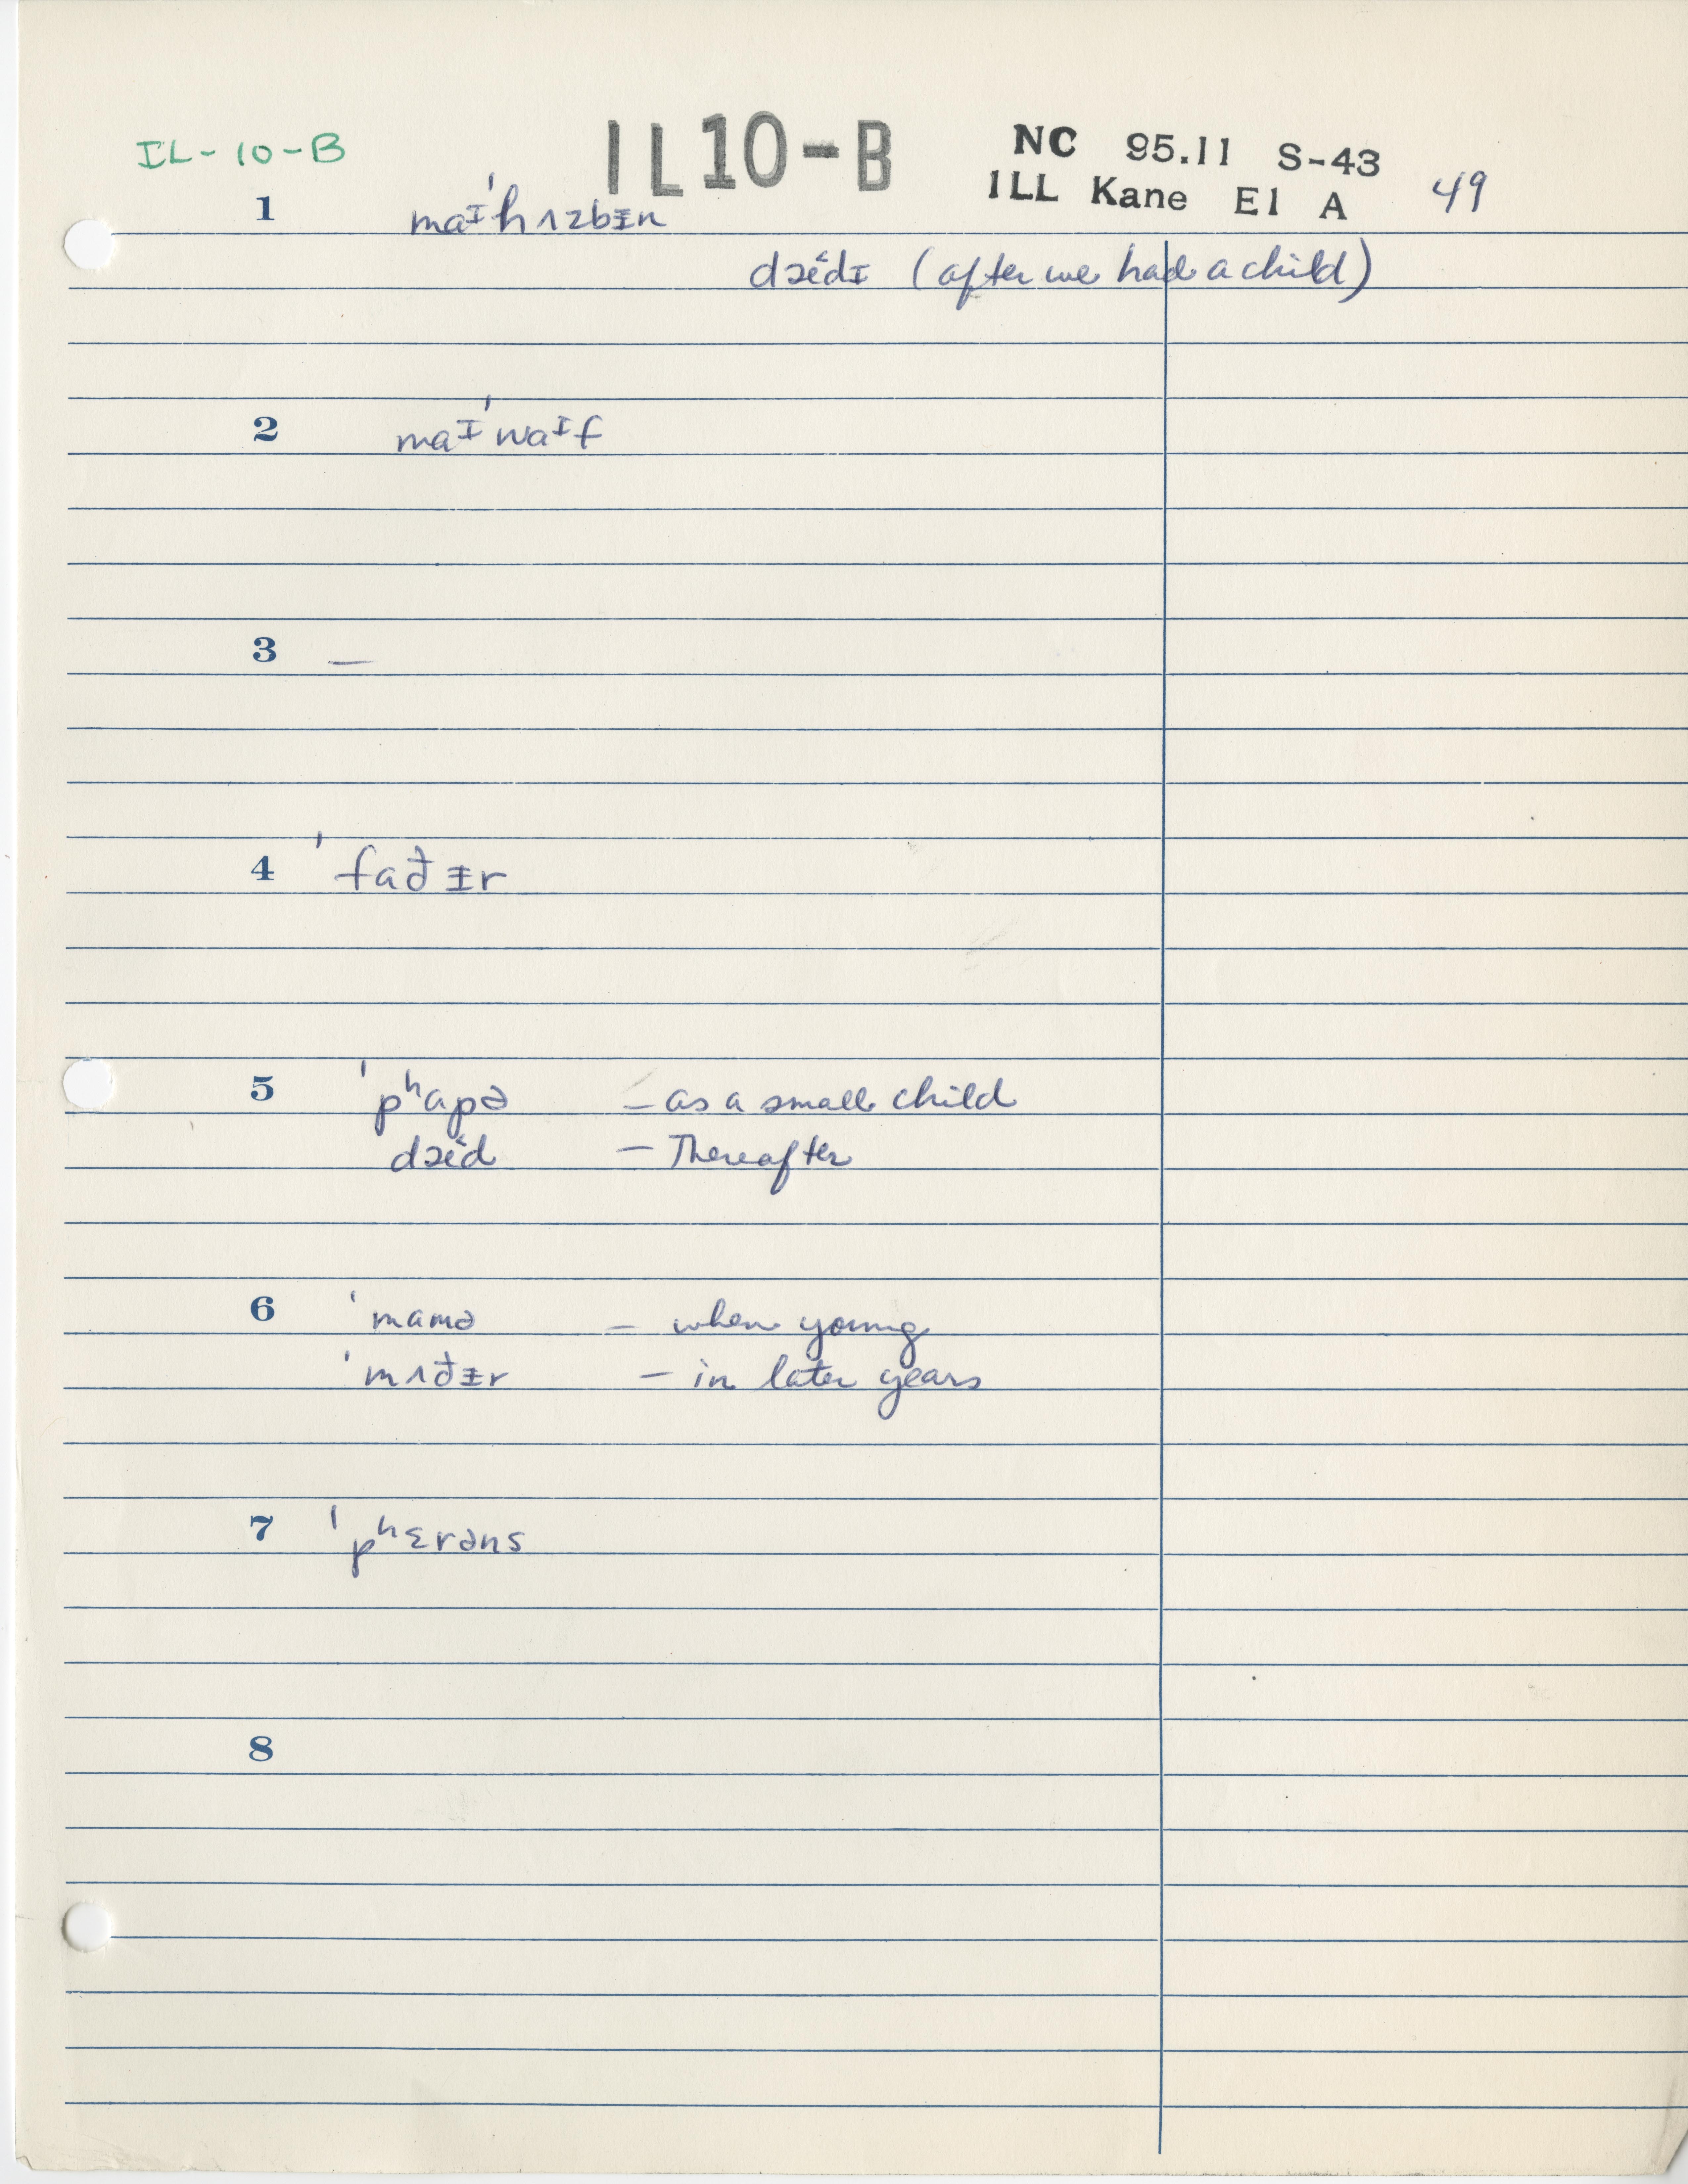 IL-10-B IL10-B NC 95.11 S-43
ILL Kane El A 49
1 maᶦˈhʌzbᵻn
dǽdɪ (after we had a child)
2 maᶦˈwaᶦf
3 —
4 ˈfaðᵻr
5 ˈpʰapə — as a small child
dǽd — Thereafter
6 ˈmamə — when young
ˈmʌðᵻr — in later years
7 ˈpʰɛrəns
8